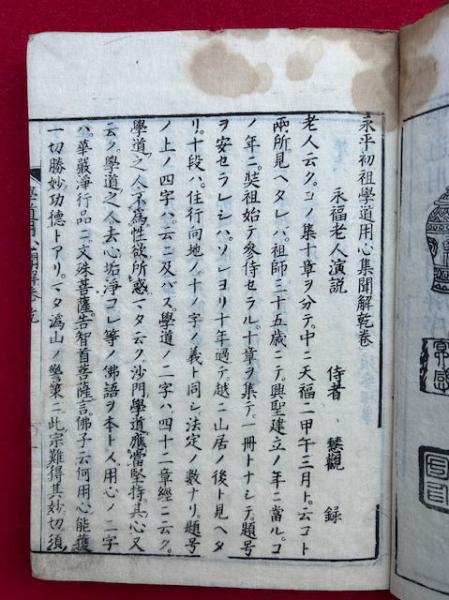 永平初祖學道用心集聞解乾卷
永福老人演説
侍者 慧觀 録
老人云ク。コノ集十章ヲ分テ。中ニ天福二甲午三月ト。云コト
兩所見ヘタレバ。祖師三十五歳ニテ。興聖建立ノ年ニ當ル。コ
ノ年ニ。奘祖始テ參侍セラル。十章ヲ集テ。一冊トナシテ題号
ヲ安セラレシハ。ソレヨリ十年過テ越ニ山居ノ後ト見ヘタ
リ。十段ハ。住行向地ノ。十ノ字ノ義ト同シ法定ノ數ナリ。題号
ノ上ノ四字ハ。云ニ及バス。學道ノ二字ハ。四十二章經ニ云ク。
學道之人。不爲性欲所惑。マタ云ク。沙門學道應當堅持其心。又
云ク。學道之人。去心垢淨。コレ等ノ佛語ヲ本ト人。用心ノ二字
ハ。華嚴淨行品ニ。文殊菩薩。告智首菩薩言。佛子云何用心能獲
一切勝妙功德トアリ。マタ潙山ノ警策ニ。此宗難得其妙。切須
學道用心聞解卷乾